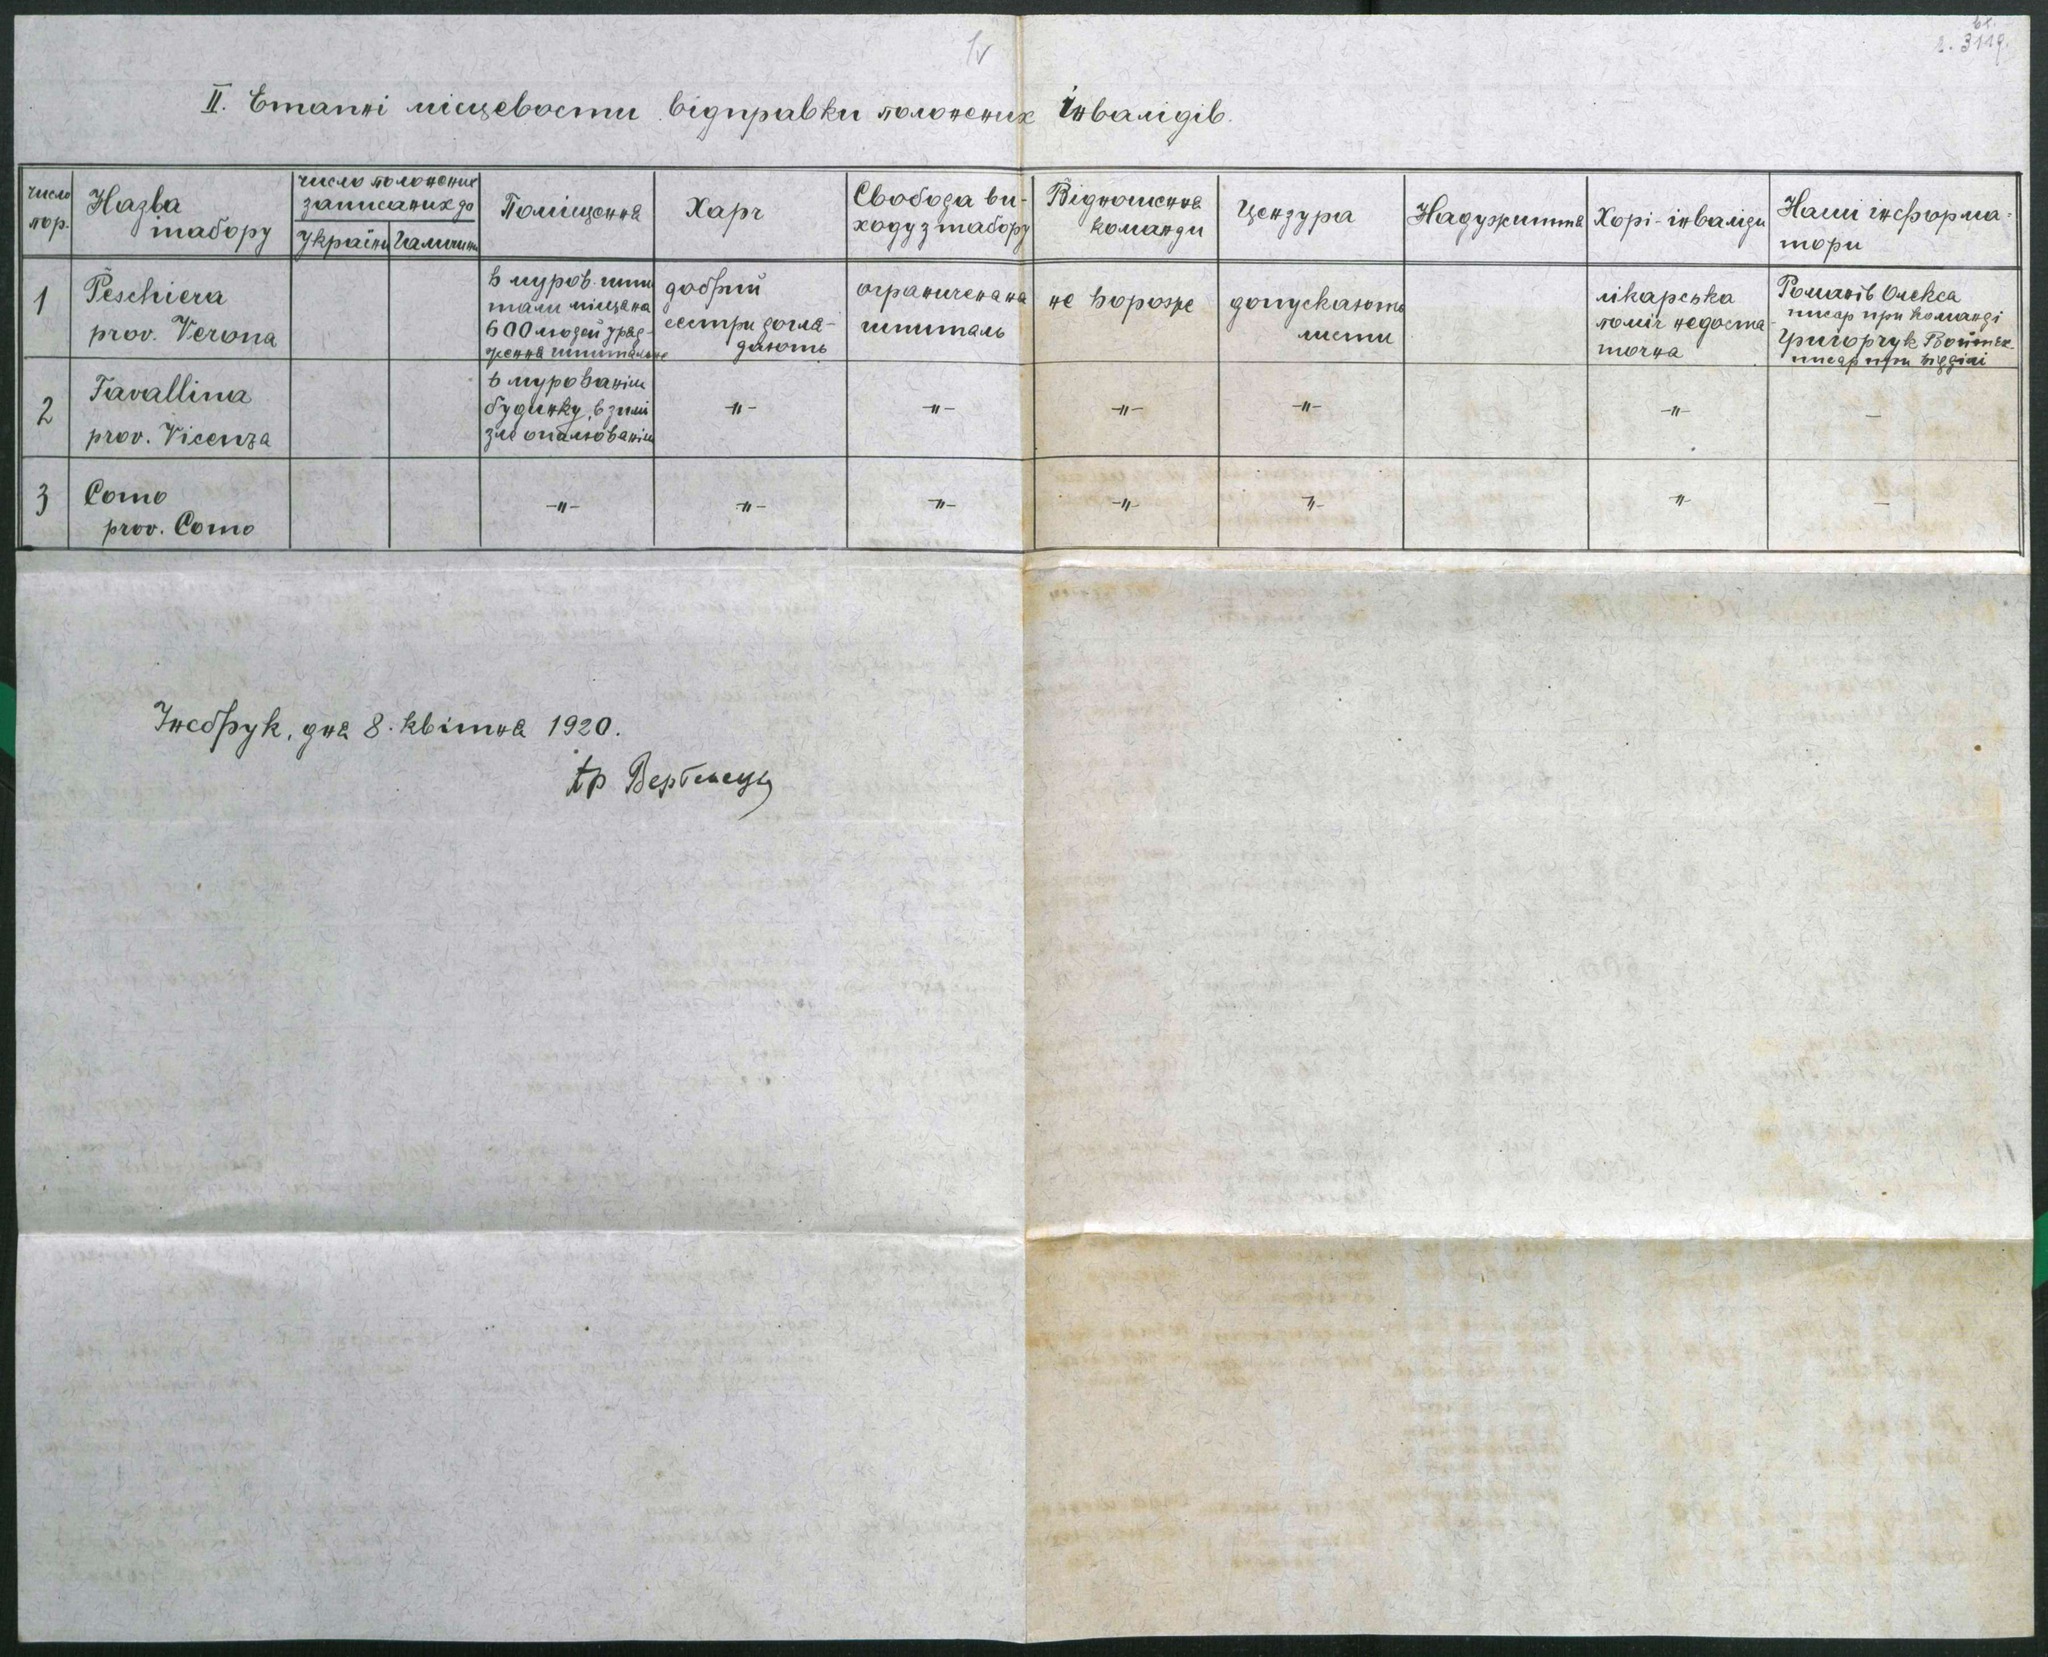 IV
вх.
ч. 3119.
II. Етапні місцевости відправки полонених інвалідів.
число пор.
Назва табору
число полонених записаних до
України
Галичини
Поміщення
Харч
Свобода ви-
ходу з табору
Відношення
команди
Цензура
Надужиття
Хорі-інваліди
Наші інформа-
тори
1
Peschiera
prov. Verona
в муров. шпи
тали міщана
600 людей уряд-
ження шпитальне
добрий
сестри догля-
дають
ограничена на
шпиталь
не вороже
допускають
листи
лікарська
поміч недоста-
точна
Романів Олекса
писар при команді
Григорчук
писар при відділі
2
Tavallina
prov. Vicenza
в мурованім
будинку, в зимі
зле опалюванім
-"-
-"-
-"-
-"-
-"-
-
3
Como
prov. Como
-"-
-"-
-"-
-"-
-"-
-"-
-
Інсбрук, дня 8. квітня 1920.